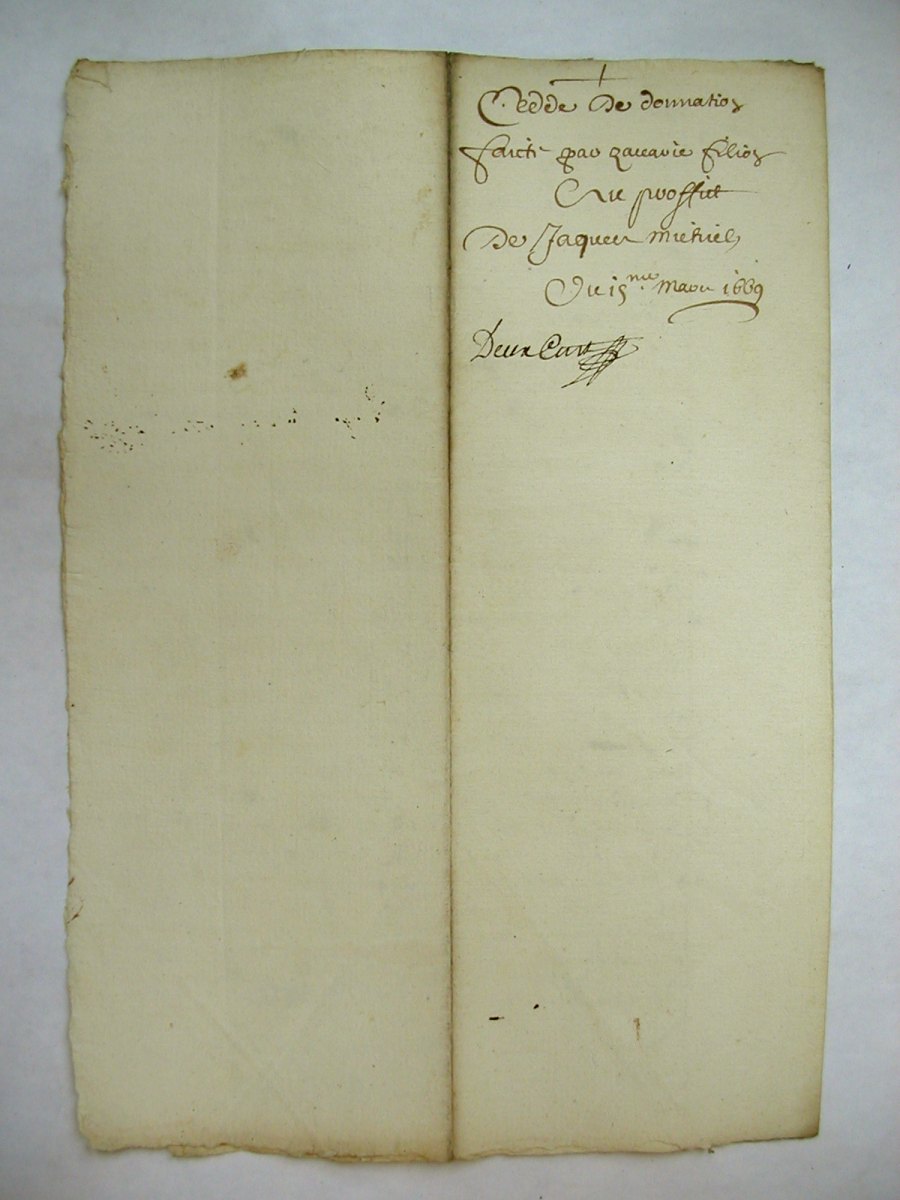 Cedde De donnation
faicte par zacarie filion
Au proffict
De Jaques michiel
Du 15me mars 1669
Deux Cart